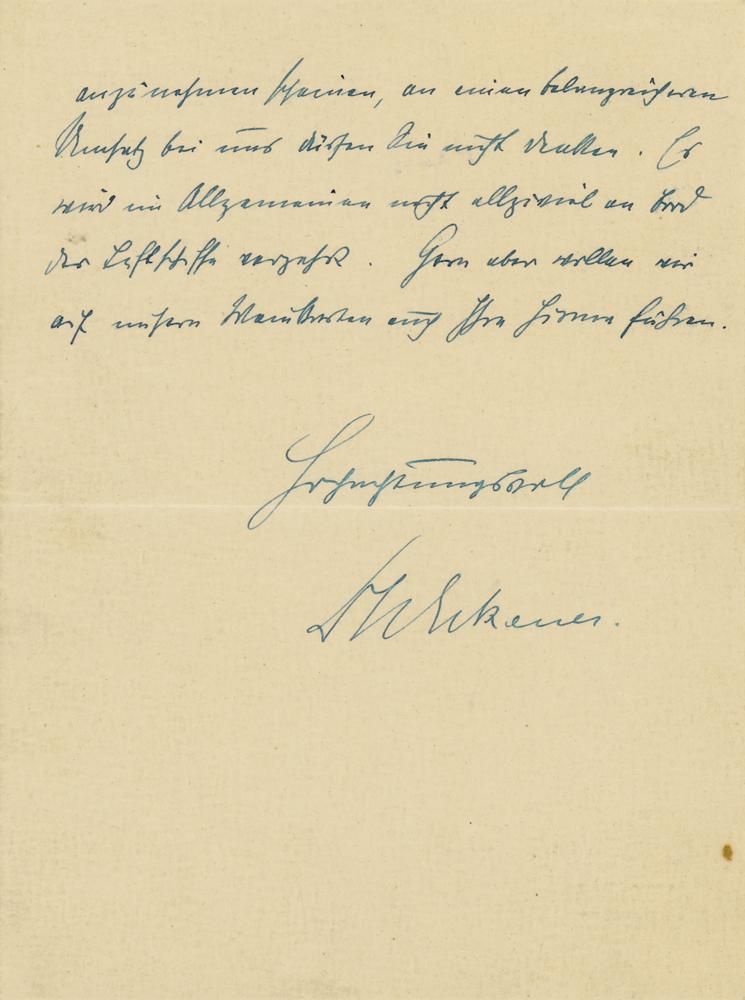 anzunehmen scheinen, an einen belangreicheren
Umsatz bei uns dürfen Sie nicht denken. Es
wird im Allgemeinen nicht allzuviel an Bord
der Luftschiffe verzehrt. Gern aber wollen wir
auf unsern Weinkarten auch Ihre Firma führen.
Hochachtungsvoll
Dr Eckener.